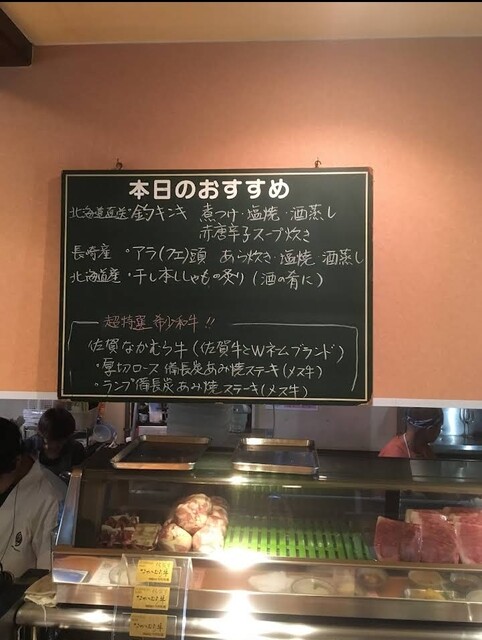 本日のおすすめ
北海道直送・釣キンキ 煮つけ・塩焼・酒蒸し
赤唐辛子スープ炊き
長崎産・アラ(クエ)頭 あら炊き・塩焼・酒蒸し
北海道産・干し本ししゃもの炙り(酒の肴に)
超特選 希少和牛!!
佐賀なかむら牛(佐賀牛とWネームブランド)
・厚切ロース 備長炭あみ焼ステーキ(メス牛)
・ランプ 備長炭あみ焼ステーキ(メス牛)
なかむら牛
なかむら牛
なかむら牛